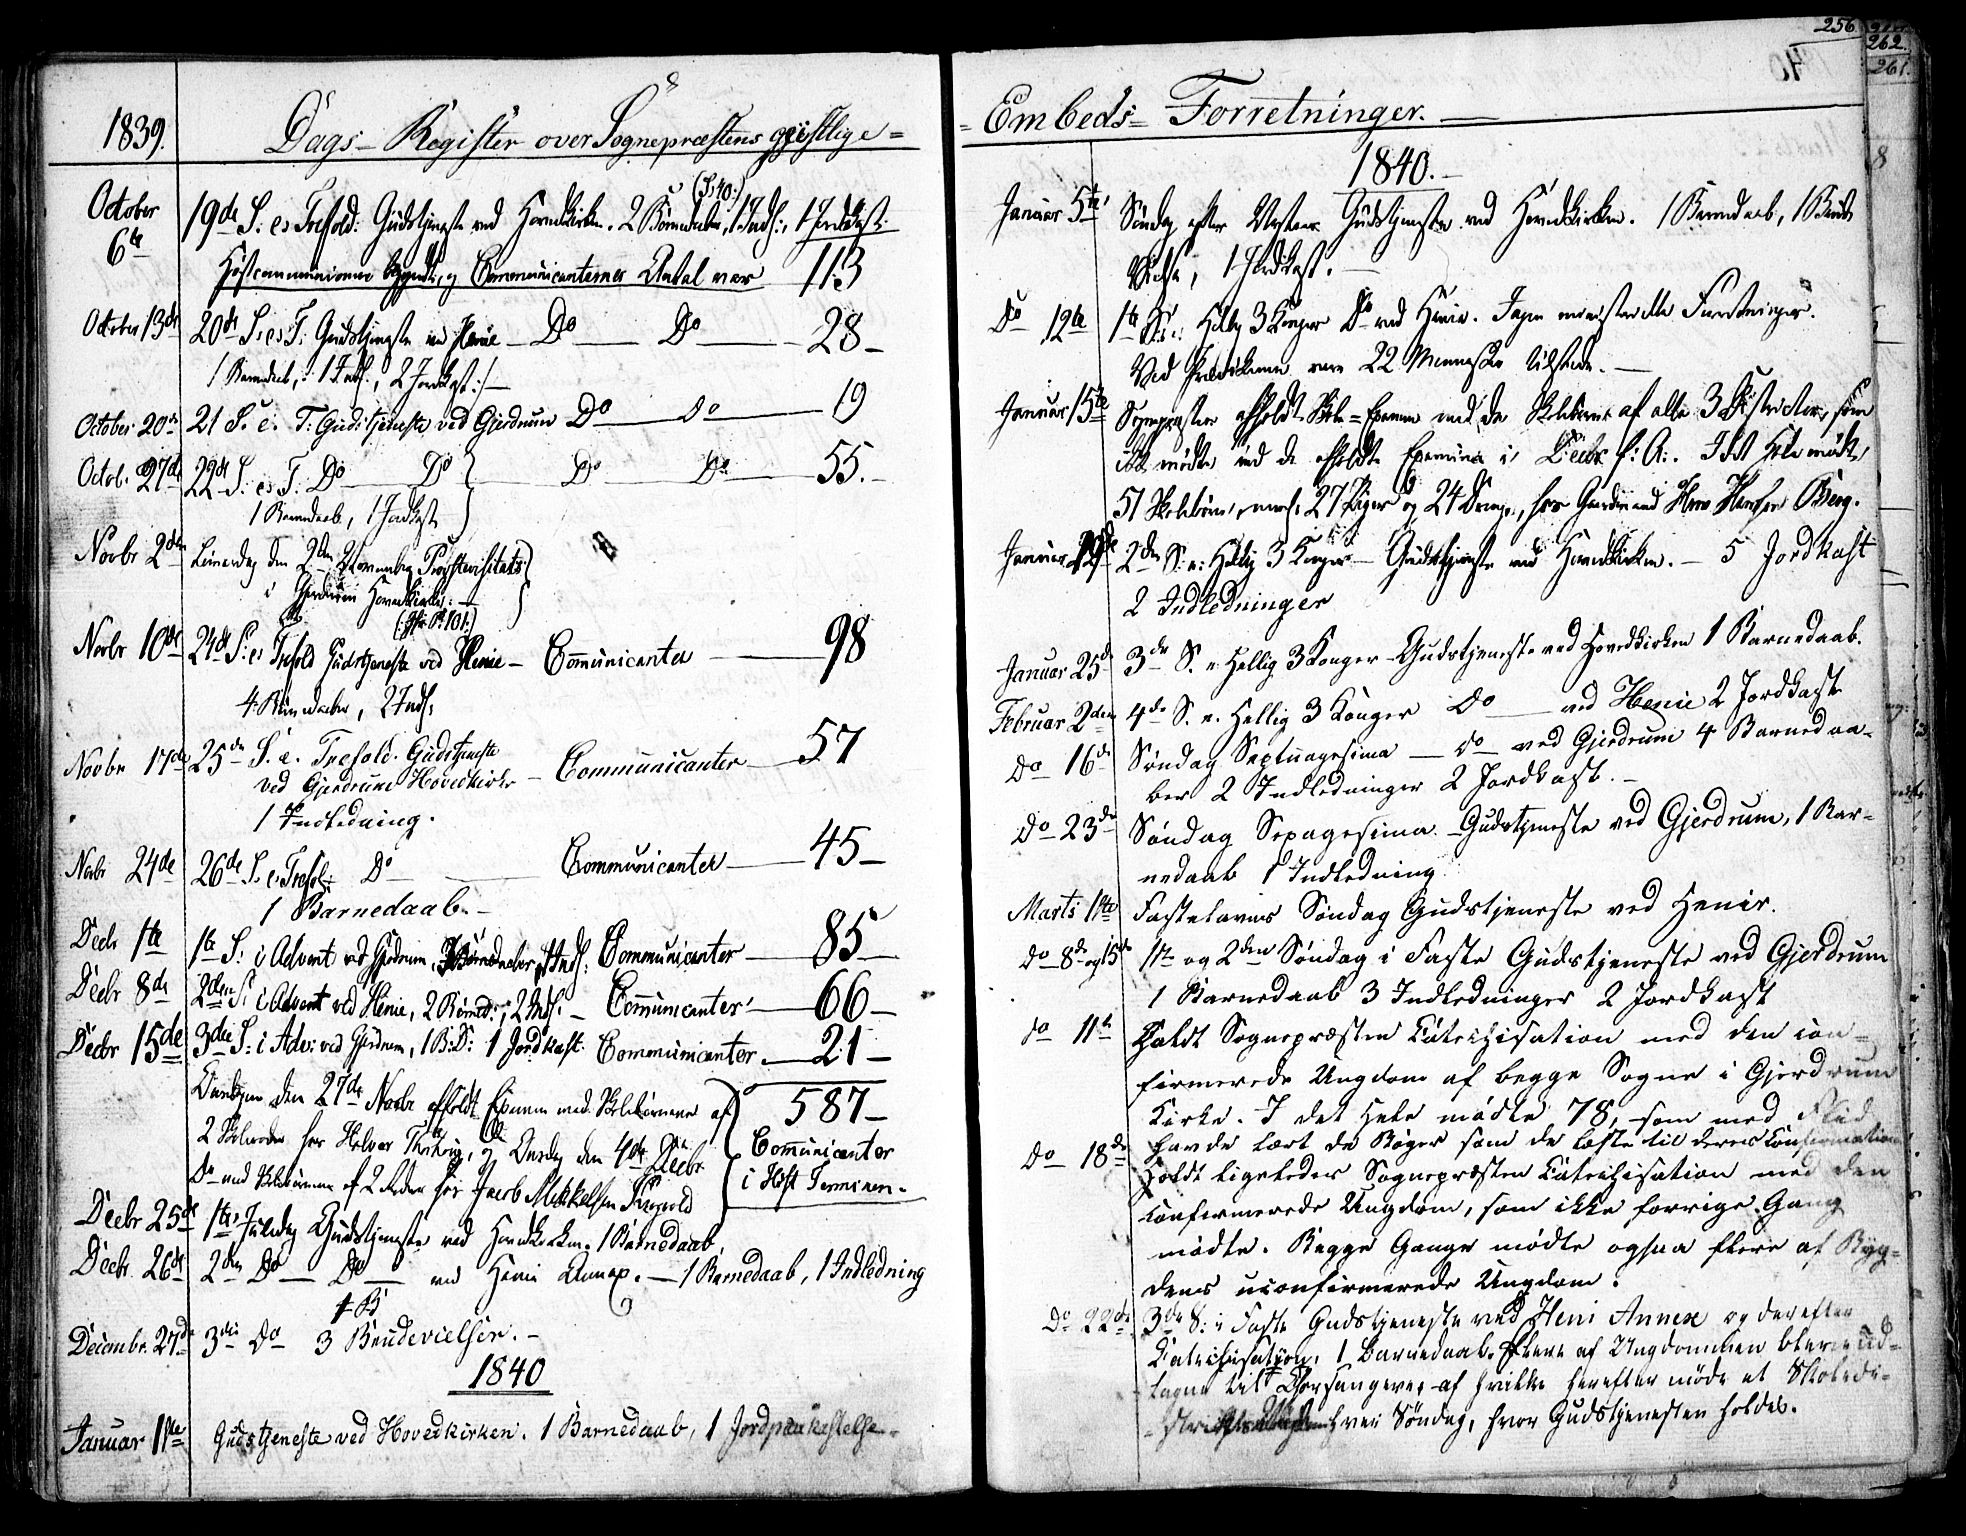 1839.
Dags-Register over Sognepræstens geistlige=
October 6te
19de S. e. Trefold: Gudstjeneste ved Hovedkirken. 2 Børnedaabe, 1 Indl:, 1 Jordkast:
Høstcommunionen begyndte, og Communicanternes Antal var 113
October 13de 20de S. e. T. Gudstjeneste ved Henie - Do - Do - 28-
1 Barnedaab, 1 Indl:, 2 Jordkast:/-
October 20de 21 S. e. T. Gudstjeneste ved Gjerdrum Do - do - 19
Octob. 27de 22de S. e. T. Do Do Do Do 55.-
1 Barnedaab, 1 Jordkast
Novbr 2den Løverdag den 2den November Provstevisitats
i Gjerdrum Hovedkirke:
(P. 101.)
Novbr 10de 24de S. e. Trefold Gudstjeneste ved Henie - Communicanter - 98
4 Børnedaabe, 2 Indl:
Novbr 17de 25de S. e. Trefold. Gudstjeneste
ved Gjerdrums Hovedkirke - Communicanter - 57
1 Indledning.
Novbr 24de 26de S. e. Trefol: Do - Communicanter - 45-
1 Barnedaab.-
Decbr 1te 1te S: i Advent ved Gjerdrum, Børnedaabe, Indl: Communicanter - 85-
Decbr 8de 2den S. i Advent ved Henie, 2 Børned:, 2 Indl. - Communicanter - 66-
Decbr 15de 3die S: i Adv: ved Gjerdrum, 1 B:D: 1 Jordkast: Communicanter - 21-
Onsdagen den 27de Novbr afholdt Examen med Skolebørnene af 587-
2 Skoleroder hos Helver, og Onsdag den 4de Decbr Communicanter
Do med Skolebørnene af 2 Roder hos Jacob Mikkelsen i Høst Terminen.
Decbr 25de 1te Juledag Gudstjeneste ved Hovedkirken. 1 Barnedaab
Decbr 26de 2den Do - Do - ved Henie Annex. - 1 Barnedaab, 1 Indledning
Decembr. 27de 3die Do 3 Brudevielser.-
1840
Januar 1te Gudstjeneste ved Hovedkirken. 1 Barnedaab, 1 Jordpaakastelse.-
256
262.
261.
=Embeds=Forretninger.-
1840.-
Januar 5te Søndag efter Nytaar Gudstjeneste ved Hovedkirken. 1 Barnedaab, 1 Brude
Vielse, 1 Jordkast.-
Do 12te 1te S. e. Hellig 3 Konger Do ved Henie. Ingen ministerielle Forretninger.
Ved Prædikenen vare 22 Mennesker tilstede.-
Januar 15de Sognepræsten afholdt Skole=Examen med de Skolebørn af alle 3 Districter, som
ikke mødte ved de afholdte Examina i Decbr f: A:. I det Hele mødte
51 Skolebørn, nml: 27 Piger og 24 Drenge, hos Gaardmand Hans Hansen Berg.
Januar 19de 2den S. e. Hellig 3 Konger - Gudstjeneste ved Hovedkirken.- 5 Jordkast
2 Indledninger
Januar 25de 3die S. e. Hellig 3 Konger - Gudstjeneste ved Hovedkirken 1 Barnedaab.
Februar 2den 4de S. e. Hellig 3 Konger Do ved Henie 2 Jordkast
Do 16de Søndag Septuagesima - do - ved Gjerdrum 4 Barnedaa-
ber 2 Indledninger 2 Jordkast.-
Do 23de Søndag Sexagesima - Gudstjeneste ved Gjerdrum, 1 Bar-
nedaab 1 Indledning
Marts 1ste Fastelavns Søndag Gudstjeneste ved Henie.
do 8de og 15de 1te og 2den Søndag i Faste Gudstjeneste ved Gjerdrum
1 Barnedaab 3 Indledninger 2 Jordkast
do 11te Holdt Sognepræsten Catechisation med den con-
firmerede Ungdom af begge Sogne i Gjerdrum
Kirke. I det Hele mødte 78, som med Flid
havde lært de Bøger som de løfte til deres Confirmation
Do 18de Holdt ligeledes Sognepræsten Catechisation med den
confirmerede Ungdom, som ikke forrige Gang
mødte. Begge Gange mødte ogsaa flere af Byg-
dens uconfirmerede Ungdom.
Do 22de 3die S: i Faste Gudstjeneste ved Heni Annex og derefter
Catechisation, 1 Barnedaab. Flere af Ungdommen bleve ud-
tagne til Chorsangere af hvilke herefter møde et Skoledi-
strict hver Søndag, hvor Gudstjenesten holdes.